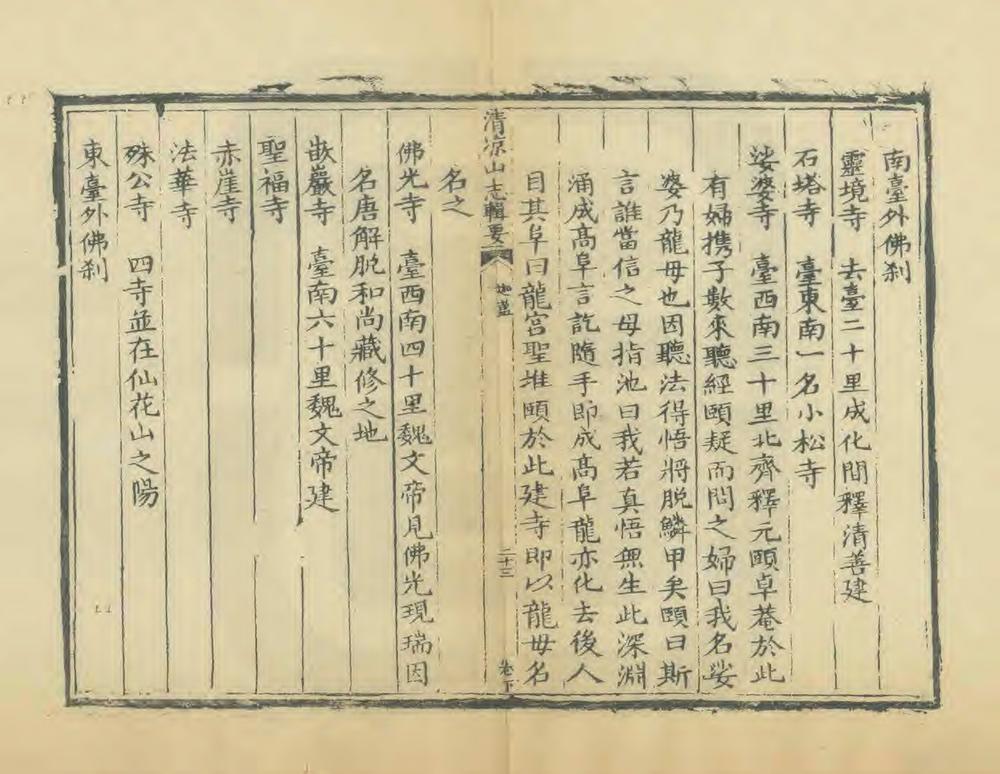 南臺外佛刹
靈境寺 去臺二十里成化間釋清善建
石塔寺 臺東南一名小松寺
娑婆寺 臺西南三十里北齊釋元頤卓菴於此
有婦携子數來聽經頤疑而問之婦曰我名娑
婆乃龍母也因聽法得悟將脫鱗甲矣頤曰斯
言誰當信之母指池曰我若真悟無生此深淵
涌成高阜言訖隨手即成高阜龍亦化去後人
目其阜曰龍宫聖堆頤於此建寺即以龍毋名
清凉山志輯要 伽藍 二十三 卷下
名之
佛光寺 臺西南四十里魏文帝見佛光現瑞因
名唐解脫和尚藏修之地
嵌巖寺 臺南六十里魏文帝建
聖福寺
赤崖寺
法華寺
殊公寺 四寺並在仙花山之陽
東臺外佛刹